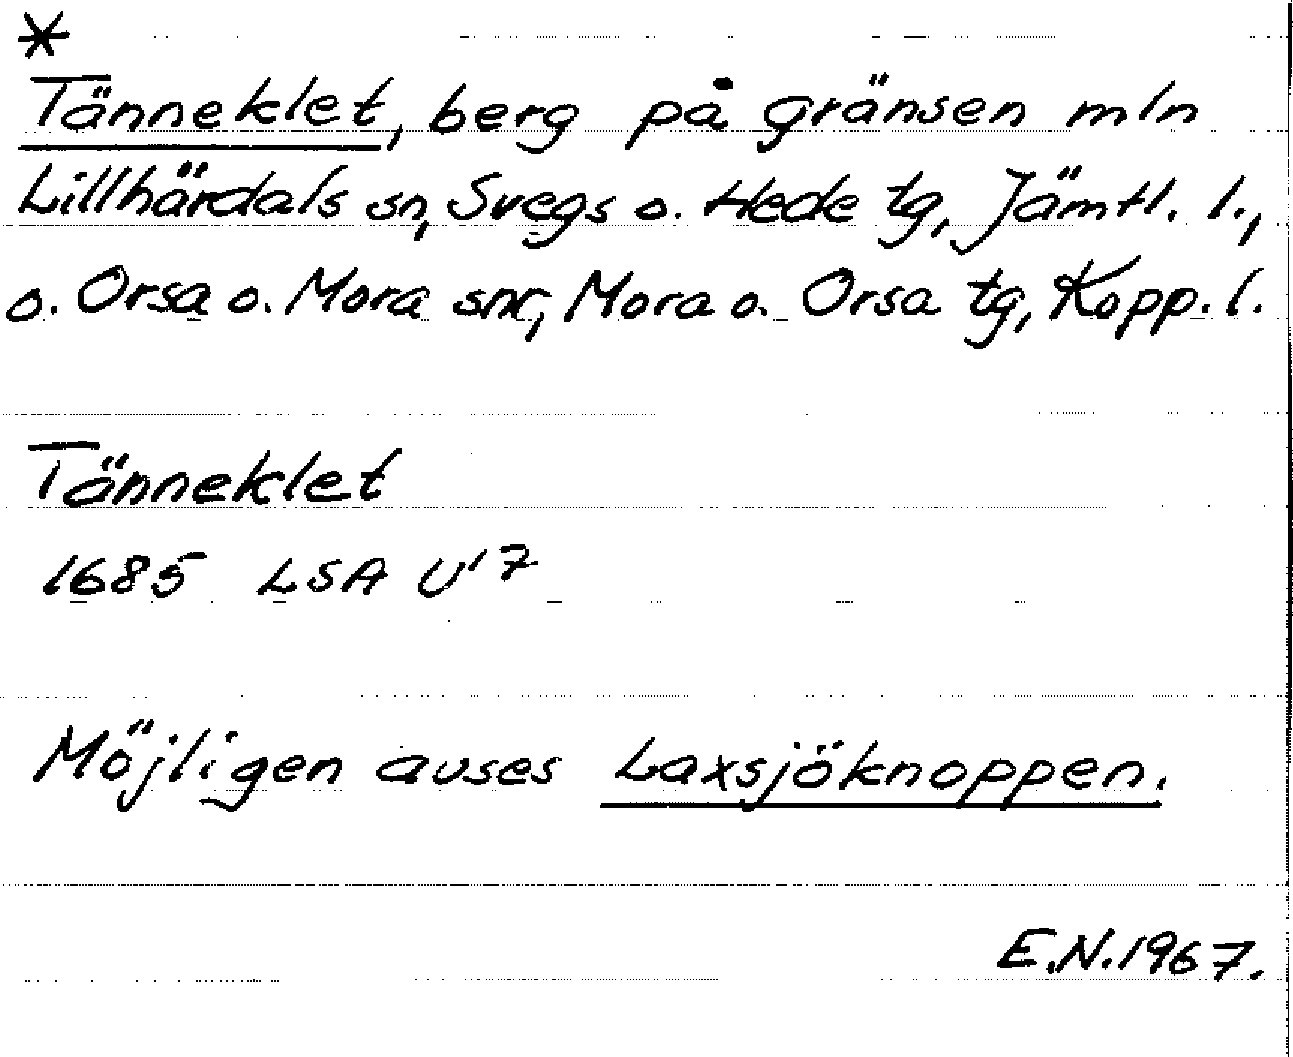 *
Tänneklet, berg på gränsen mln
Lillhärdals sn, Svegs o. Hede tg, Jämtl. l.,
o. Orsa o. Mora snr, Mora o. Orsa tg, Kopp. l.
Tänneklet
1685 LSA U'7
Möjligen avses Laxsjöknoppen.
E.N. 1967.